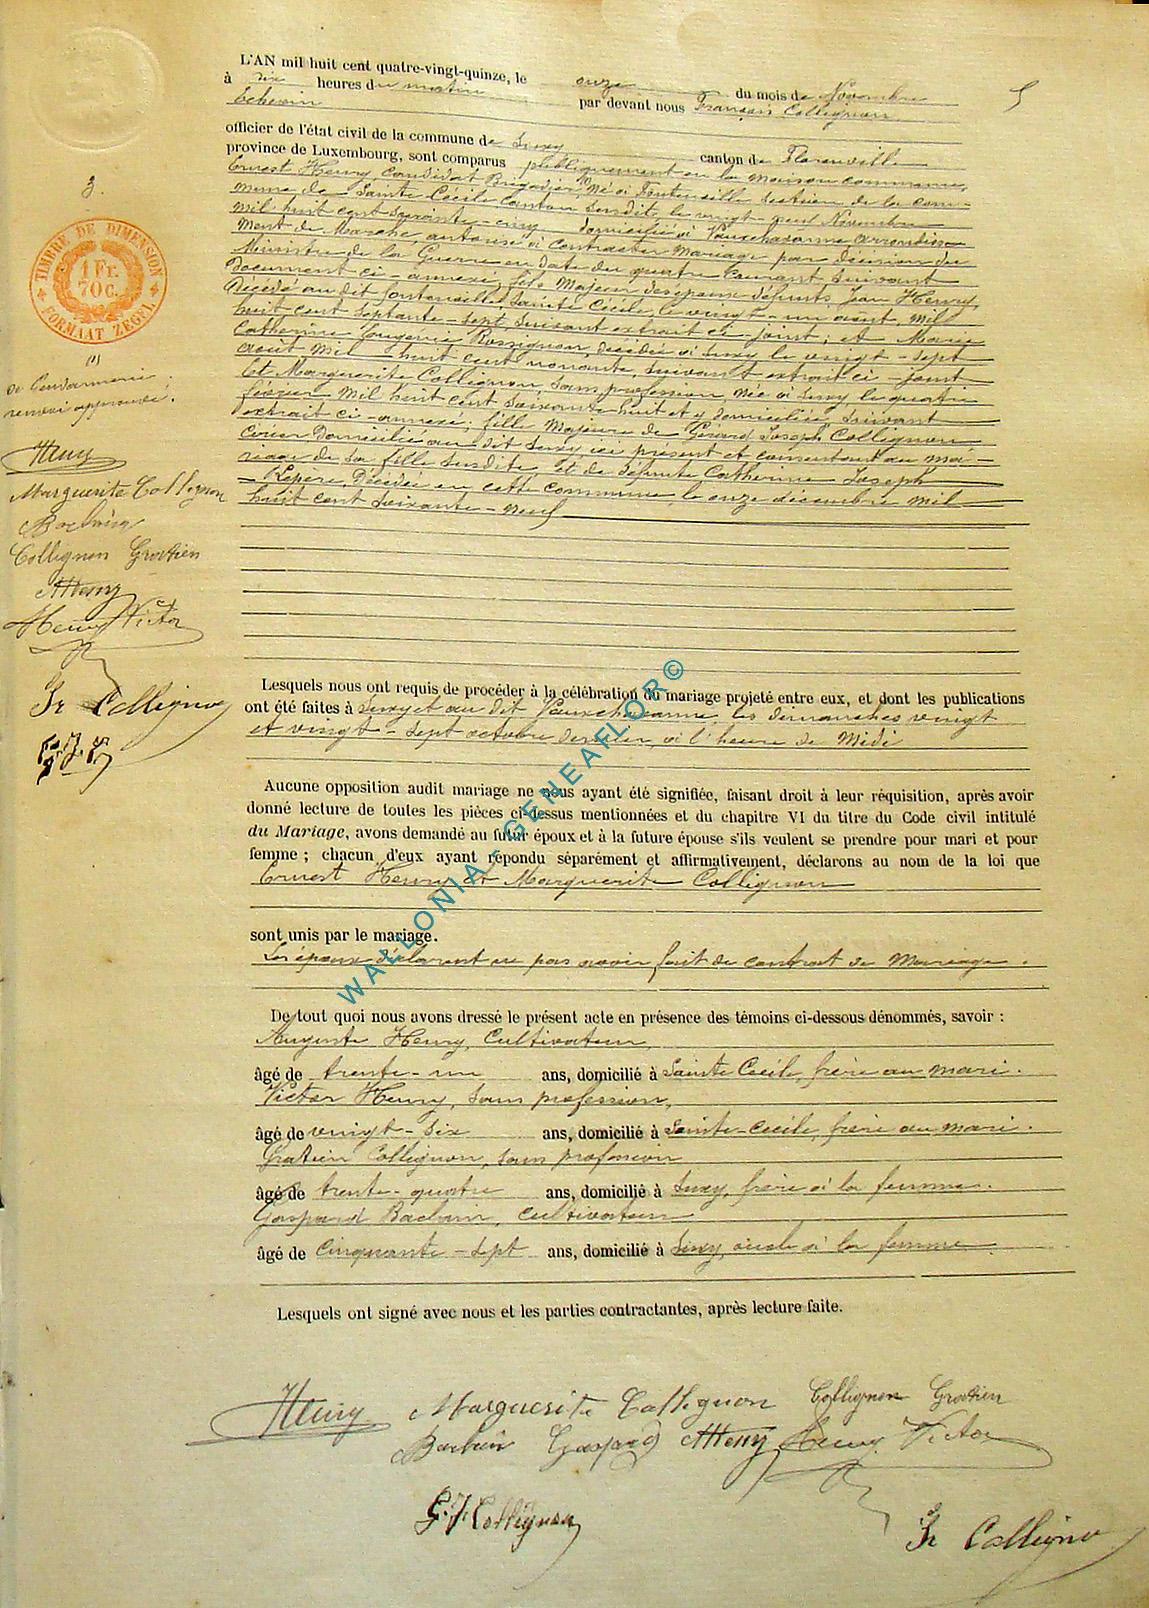 L'AN mil huit cent quatre-vingt-quinze, le onze du mois de Novembre
à dix heures du matin par devant nous François Collignon
Echevin
officier de l'état civil de la commune de Suxy canton de Florenville
province de Luxembourg, sont comparus publiquement en la maison commune,
Ernest Henry candidat Brigadier (1) né à Fontenoille section de la com-
mune de Sainte Cécile canton susdit, le vingt-neuf Novembre
mil huit cent soixante-cinq domicilié à Vauxchavanne arrondisse-
ment de Marche, autorisé à contracter mariage par décision du
Ministre de la Guerre en date du quatre courant suivant
document ci-annexé, fils majeur des époux défunts Jean Henry,
décédé au dit Fontenoille Sainte Cécile, le vingt-un août, mil
huit cent septante-sept suivant extrait ci-joint; et Marie
Catherine Rossignon, décédée à Suxy le vingt-sept
août mil huit cent nonante, suivant extrait ci-joint
Et Marguerite Collignon, sans profession, née à Suxy le quatre
février mil huit cent soixante-huit et y domiciliée, suivant
extrait ci-annexé, fille majeure de Gérard Joseph Collignon
domicilié au dit Suxy ici présent et consentant au ma-
riage de sa fille susdite et de défunte Catherine Joseph
Lepère, décédée en cette commune, le onze décembre mil
huit cent soixante-neuf
3.
TIMBRE DE DIMENSION
1 Fr.
70 c.
FORMAAT ZEGEL
(1)
de Gendarmerie
renvoi approuvé.
Henry
Marguerite Collignon
Barbain
Collignon Gratien
AHenry
Henry Victor
Fr Collignon
G.J.C
Lesquels nous ont requis de procéder à la célébration du mariage projeté entre eux, et dont les publications
ont été faites à Suxy et au dit Vauxchavanne, les dimanches vingt
et vingt-sept octobre dernier, à l'heure de Midi
Aucune opposition audit mariage ne nous ayant été signifiée, faisant droit à leur réquisition, après avoir
donné lecture de toutes les pièces ci-dessus mentionnées et du chapitre VI du titre du Code civil intitulé
du Mariage, avons demandé au futur époux et à la future épouse s'ils veulent se prendre pour mari et pour
femme ; chacun d'eux ayant répondu séparément et affirmativement, déclarons au nom de la loi que
Ernest Henry et Marguerite Collignon
sont unis par le mariage.
Les époux déclarent ne pas avoir fait de contrat de mariage.
De tout quoi nous avons dressé le présent acte en présence des témoins ci-dessous dénommés, savoir :
Auguste Henry, Cultivateur,
âgé de trente-un ans, domicilié à Sainte Cécile, frère au mari.
Victor Henry, sans profession,
âgé de vingt-six ans, domicilié à Sainte-Cécile, frère au mari.
Gratien Collignon, sans profession
âgé de trente-quatre ans, domicilié à Suxy, frère à la femme.
Gaspard Barbain, cultivateur
âgé de cinquante-sept ans, domicilié à Suxy, oncle à la femme.
Lesquels ont signé avec nous et les parties contractantes, après lecture faite.
Henry Marguerite Collignon Collignon Gratien
Barbain Gaspard AHenry Henry Victor
G.J.Collignon
Fr Collignon
WALLONIA-GENEAFLOR©